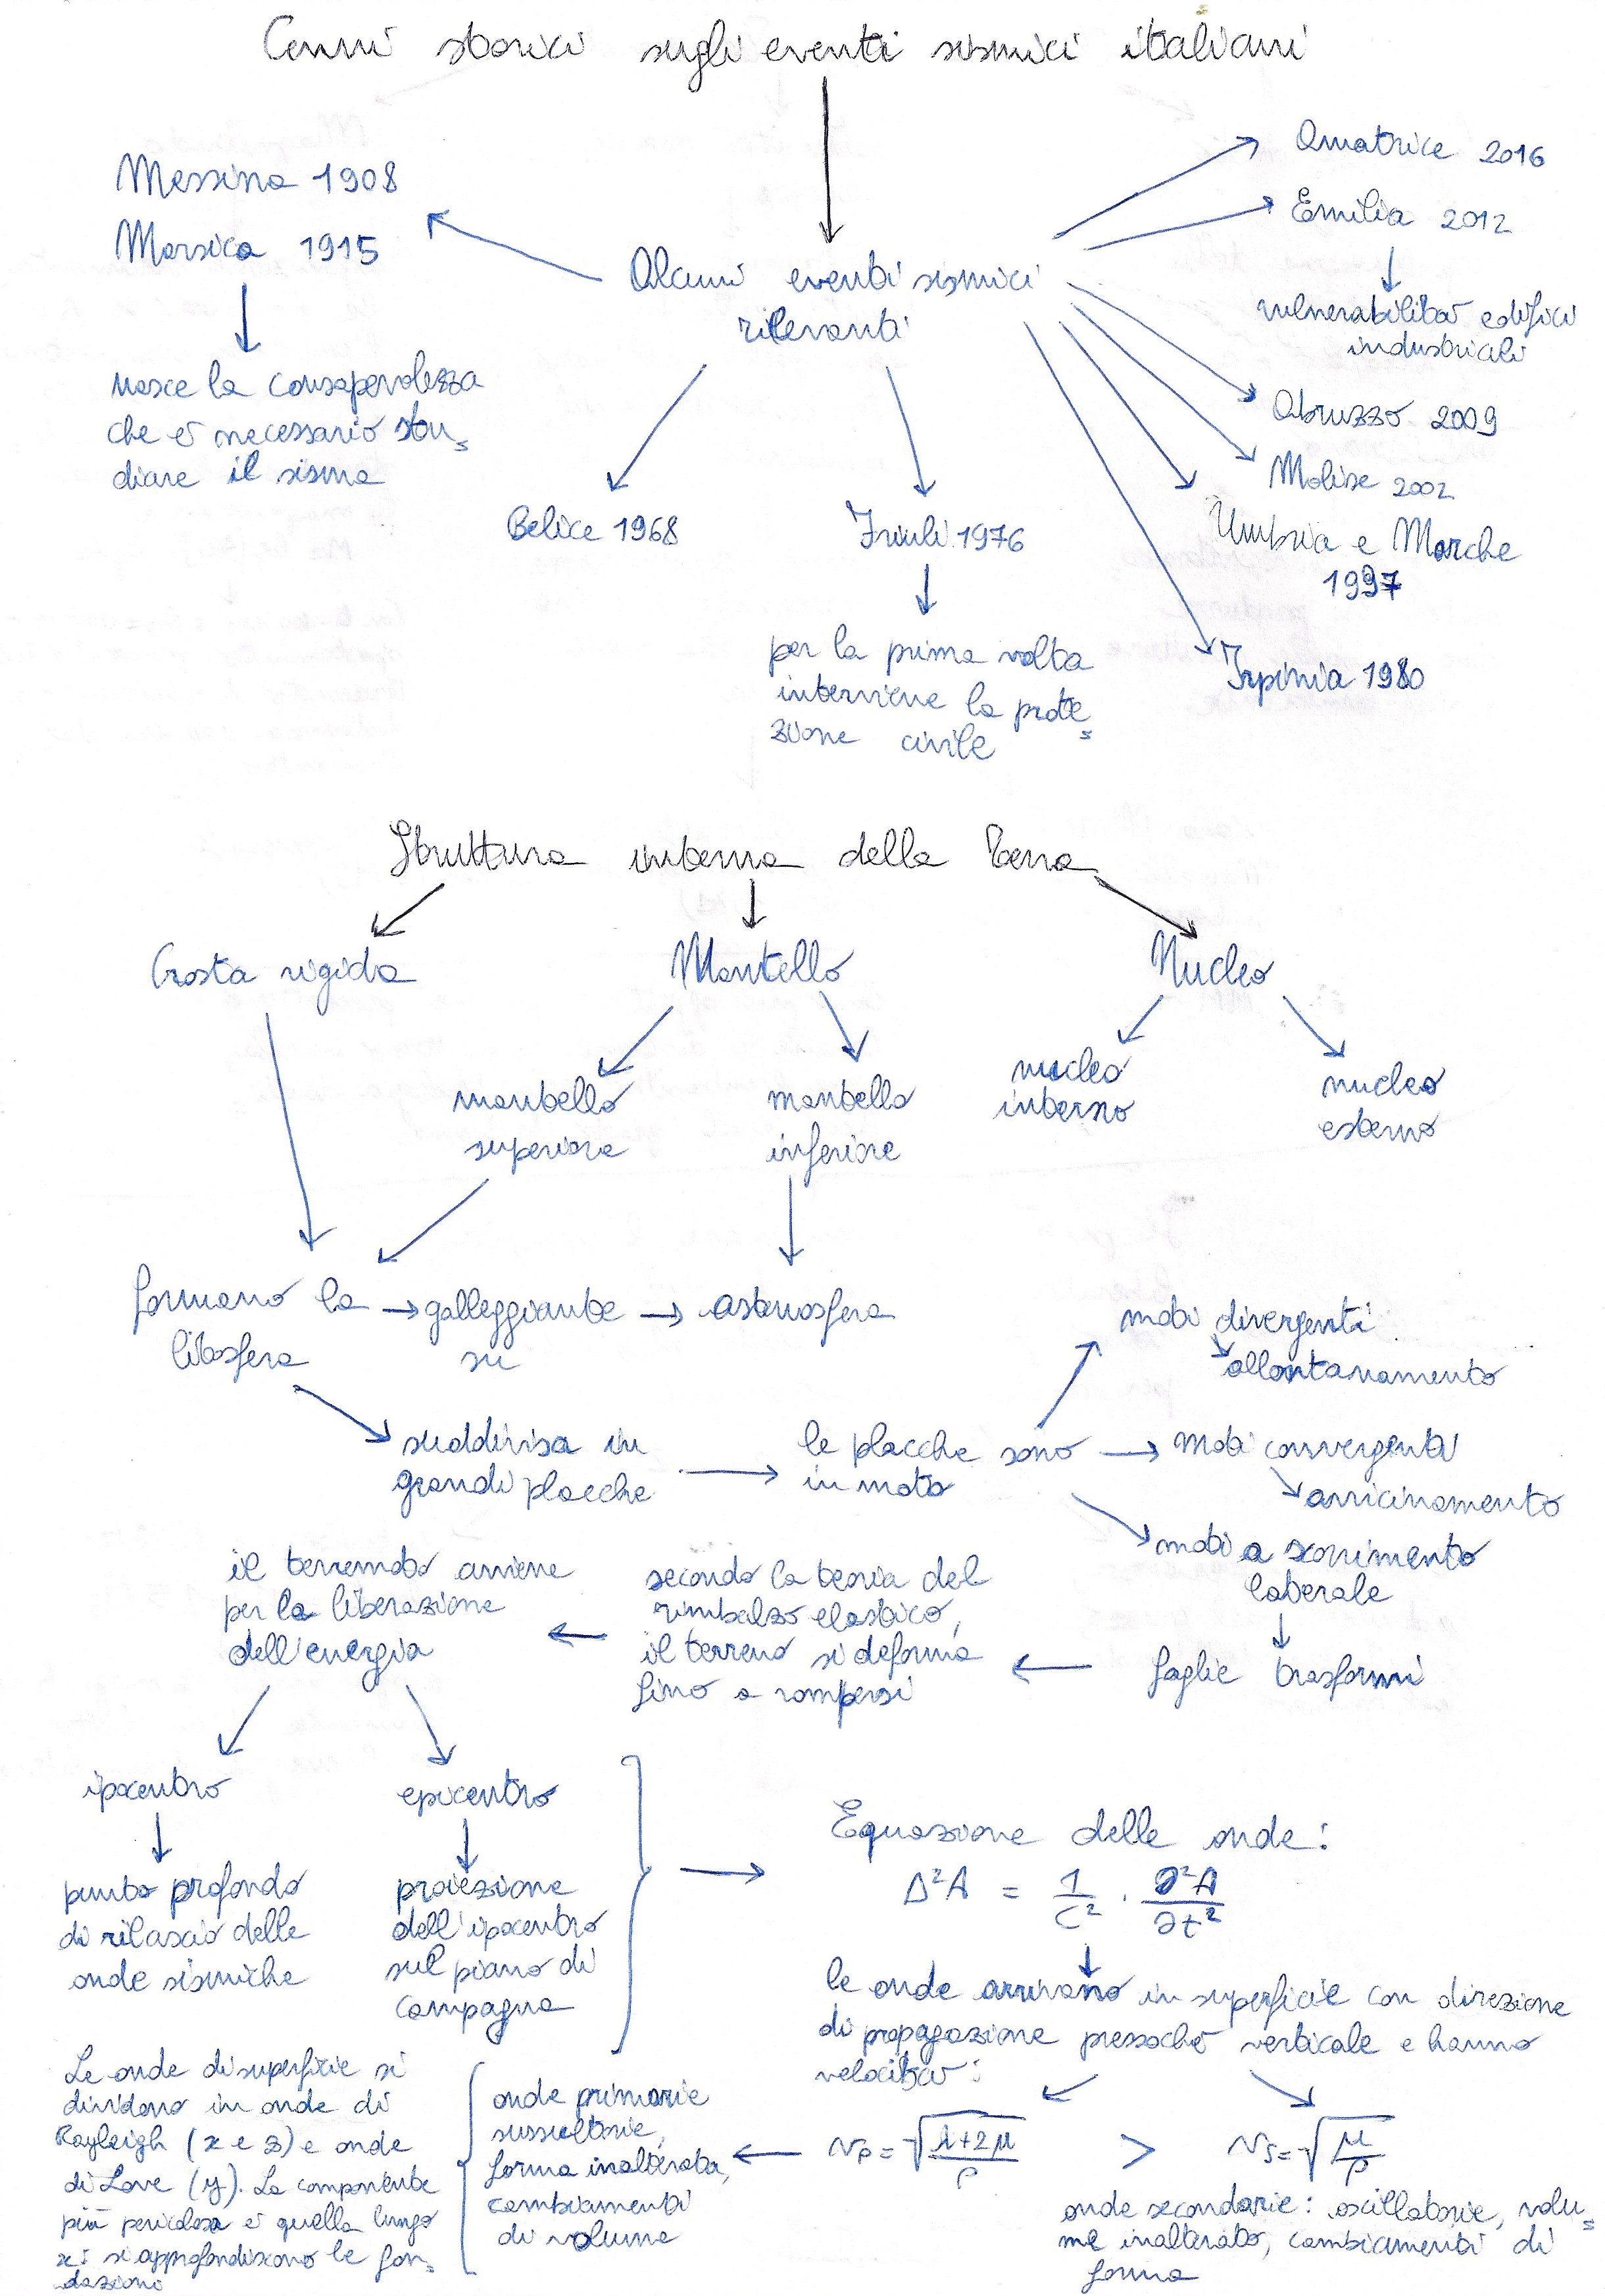 Cenni storici sugli eventi sismici italiani
Messina 1908
Marsica 1915
nasce la consapevolezza
che è necessario stu=
diare il sisma
Alcuni eventi sismici
rilevanti
Amatrice 2016
Emilia 2012
vulnerabilità edifici
industriali
Abruzzo 2009
Molise 2002
Umbria e Marche
1997
Irpinia 1980
Belice 1968
Friuli 1976
per la prima volta
interviene la prote=
zione civile
Struttura interna della Terra
Crosta rigida
Mantello
Nucleo
mantello
superiore
mantello
inferiore
nucleo
interno
nucleo
esterno
formano la
litosfera
→ galleggiante →
su
astenosfera
suddivisa in
grandi placche
le placche sono
in moto
moti divergenti
allontanamento
moti convergenti
avvicinamento
moti a scorrimento
laterale
faglie trasformi
secondo la teoria del
rimbalzo elastico,
il terreno si deforma
fino a rompersi
il terremoto avviene
per la liberazione
dell'energia
ipocentro
punto profondo
di rilascio delle
onde sismiche
epicentro
proiezione
dell'ipocentro
sul piano di
campagna
Equazione delle onde:
Δ²A = 1/c² · ∂²A/∂t²
le onde arrivano in superficie con direzione
di propagazione pressoché verticale e hanno
velocità:
vp = √(λ+2μ/ρ) > vs = √(μ/ρ)
onde secondarie: oscillatorie, volu=
me inalterato, cambiamenti di
forma
onde primarie
sussultorie,
forma inalterata,
cambiamenti
di volume
Le onde di superficie si
dividono in onde di
Rayleigh (x e z) e onde
di Love (y). La componente
più pericolosa è quella lungo
x: si approfondiscono le fon=
dazioni